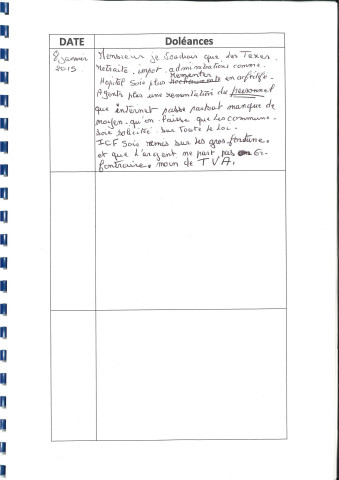 DATE Doléances
8 janvier
2019
Monsieur je voudrais que des Taxes.
Retraite, impot, administrations comme.
Rementer
Hopital Soie plus en
Agents plus une du personnel
que internet passe partout manque de
moyen. qu'on laisse que les commune.
soie sur toute le loi.
ICF Soie remes sur les gros fortune.
et que l'argent me part pas
moin de TVA.